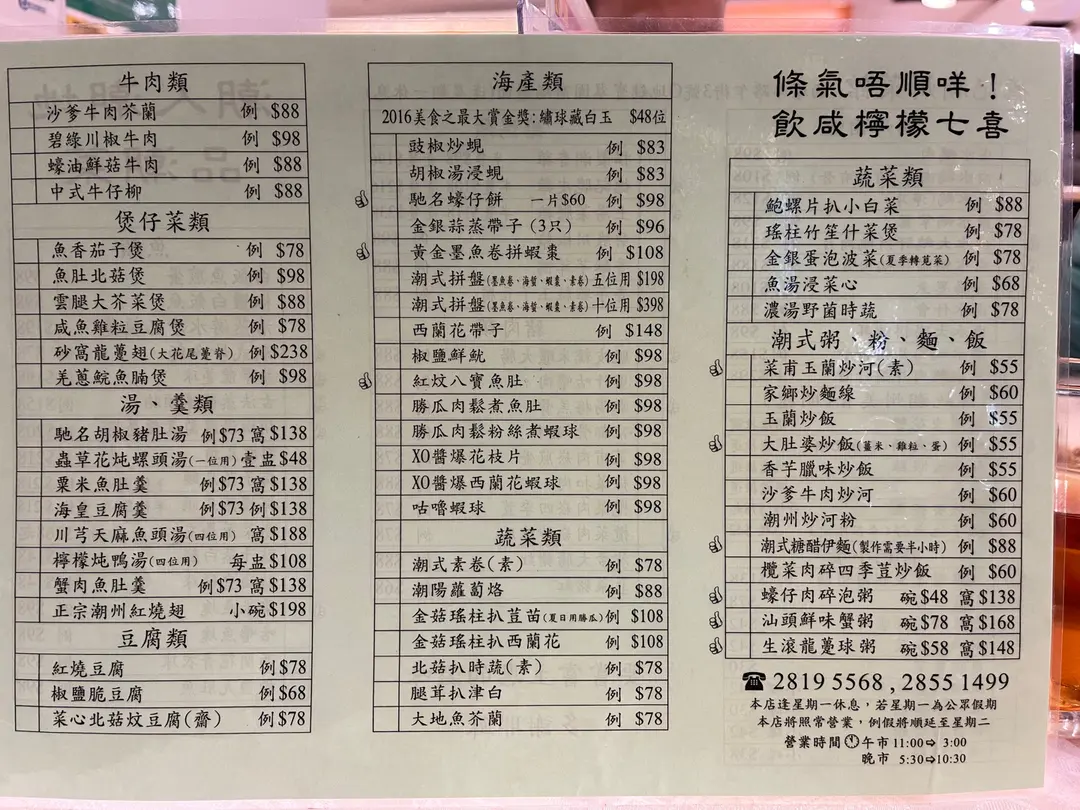 牛肉類
沙爹牛肉芥蘭 例 $88
碧綠川椒牛肉 例 $98
蠔油鮮菇牛肉 例 $88
中式牛仔柳 例 $88
煲仔菜類
魚香茄子煲 例 $78
魚肚北菇煲 例 $98
雲腿大芥菜煲 例 $88
咸魚雞粒豆腐煲 例 $78
砂窩龍躉翅(大花尾躉脊) 例 $238
羌蔥鯇魚腩煲 例 $98
湯、羹類
馳名胡椒豬肚湯 例$73 窩$138
蟲草花炖螺頭湯(一位用) 壹盅$48
粟米魚肚羹 例$73 窩$138
海皇豆腐羹 例$73 例$138
川芎天麻魚頭湯(四位用) 窩 $188
檸檬炖鴨湯(四位用) 每盅$108
蟹肉魚肚羹 例$73 窩$138
正宗潮州紅燒翅 小碗$198
豆腐類
紅燒豆腐 例$78
椒鹽脆豆腐 例$68
菜心北菇炆豆腐(齋) 例$78
海產類
2016美食之最大賞金獎:繡球藏白玉 $48位
豉椒炒蜆 例 $83
胡椒湯浸蜆 例 $83
馳名蠔仔餅 一片$60 例 $98
金銀蒜蒸帶子(3只) 例 $96
黃金墨魚卷拼蝦棗 例 $108
潮式拼盤(墨魚卷、海蜇、蝦棗、素卷)五位用 $198
潮式拼盤(墨魚卷、海蜇、蝦棗、素卷)十位用 $398
西蘭花帶子 例 $148
椒鹽鮮魷 例 $98
紅炆八寶魚肚 例 $98
勝瓜肉鬆煮魚肚 例 $98
勝瓜肉鬆粉絲煮蝦球 例 $98
XO醬爆花枝片 例 $98
XO醬爆西蘭花蝦球 例 $98
咕嚕蝦球 例 $98
蔬菜類
潮式素卷(素) 例 $78
潮陽蘿蔔烙 例 $88
金菇瑤柱扒荳苗(夏日用勝瓜)例 $108
金菇瑤柱扒西蘭花 例 $108
北菇扒時蔬(素) 例 $78
腿茸扒津白 例 $78
大地魚芥蘭 例 $78
條氣唔順咩!
飲咸檸檬七喜
蔬菜類
鮑螺片扒小白菜 例 $88
瑤柱竹笙什菜煲 例 $78
金銀蛋泡波菜(夏季轉莧菜) 例 $78
魚湯浸菜心 例 $68
濃湯野菌時蔬 例 $78
潮式粥、粉、麵、飯
菜甫玉蘭炒河(素) 例 $55
家鄉炒麵線 例 $60
玉蘭炒飯 例 $55
大肚婆炒飯(薑米、雞粒、蛋) 例 $55
香芋臘味炒飯 例 $55
沙爹牛肉炒河 例 $60
潮州炒河粉 例 $60
潮式糖醋伊麵(製作需要半小時) 例 $88
欖菜肉碎四季荳炒飯 例 $60
蠔仔肉碎泡粥 碗$48 窩$138
汕頭鮮味蟹粥 碗$78 窩$168
生滾龍躉球粥 碗$58 窩$148
☎ 2819 5568 , 2855 1499
本店逢星期一休息,若星期一為公眾假期
本店將照常營業,例假將順延至星期二
營業時間 午市 11:00⇨ 3:00
晚市 5:30⇨10:30